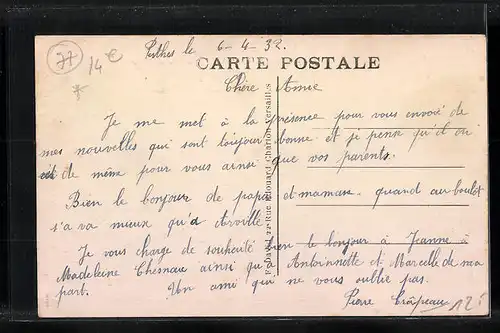 77
14€
Perthes le 6-4-32.
CARTE POSTALE
Chère Amie
Je me met à la présence pour vous envoié de
mes nouvelles qui sont toujour bonne et je pense qu'il en
est de même pour vous ainsi que vos parents.
Bien le bonjour de papa et maman. quand au boulot
s'a va mieux qu'à
Je vous charge de souhaité bien le bonjour à Jeanne à
Madeleine Chesnau ainsi qu'à Antoinnette et Marcelle de ma
part. Un ami qui ne vous oublie pas.
Pierre Crâpeau
12
Rue Edouard Charton Versailles